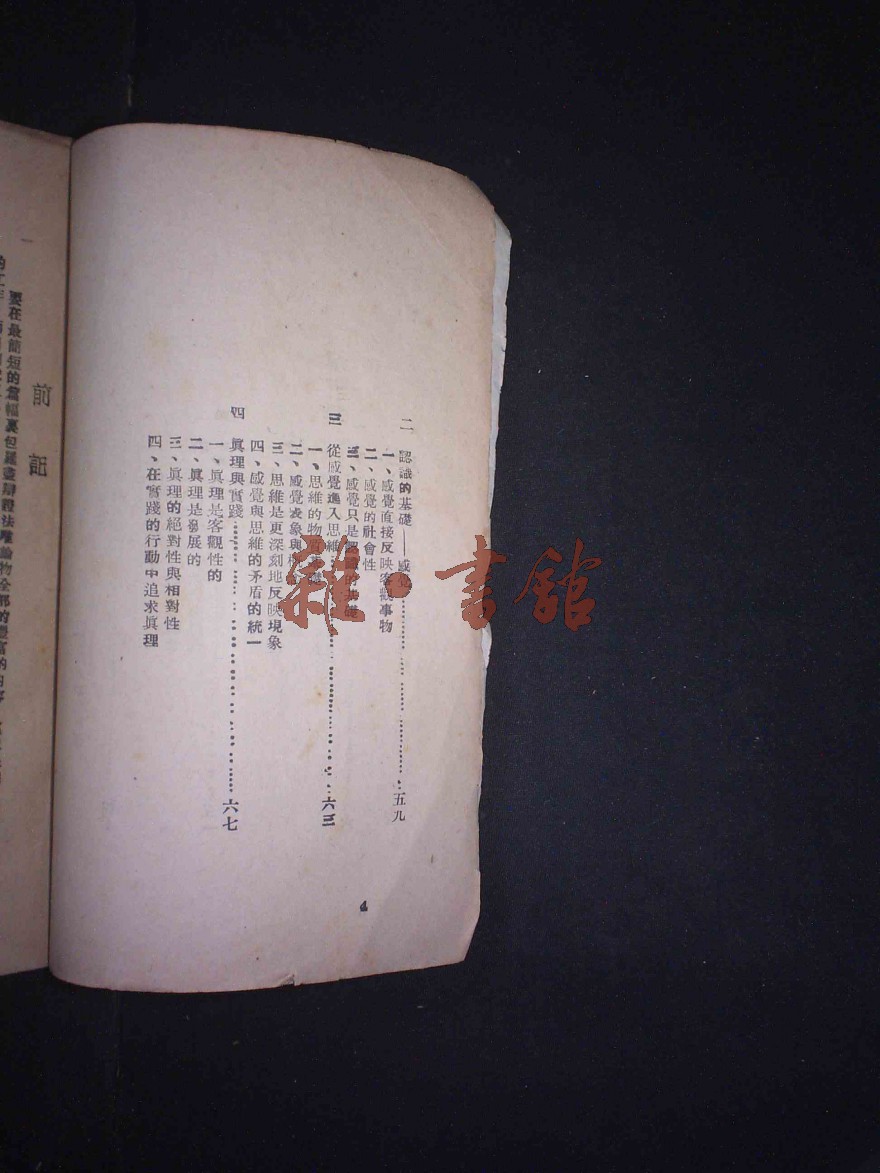 二 認識的基礎——感覺……五九
一、感覺直接反映客觀事物
二、感覺的社會性
三、感覺只是認識的基礎
三 從感覺進入思維……六三
一、思維的物質基礎
二、感覺表象與
三、思維是更深刻地反映現象
四、感覺與思維的矛盾的統一
四 眞理與實踐……六七
一、眞理是客觀性的
二、眞理是發展的
三、眞理的絕對性與相對性
四、在實踐的行動中追求眞理
4
前記
要在最簡短的篇幅裏包羅盡辯證法唯論物全部的豐富的內容
雜·書館